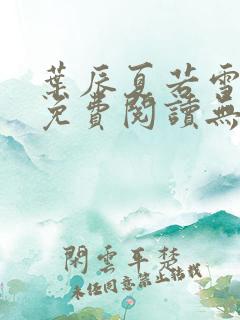 葉辰夏若雪
免費閱讀無
閑雲平楚
未经同意禁止转载